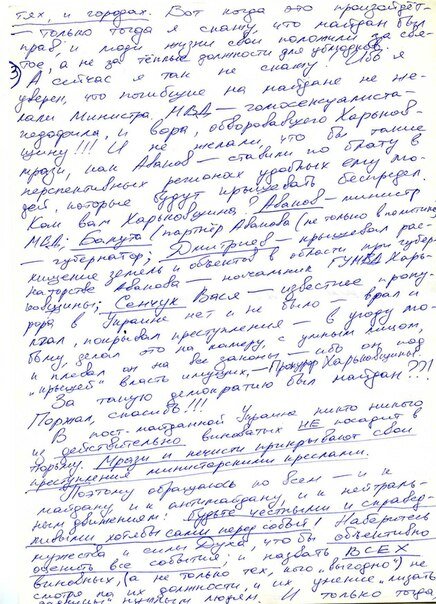 тях, и городах. Вот когда это произойдёт -
- только тогда я скажу, что майдан был
прав и люди жизни свои положили за свя-
тое, а не за тёплые должности для ублюдков.
3) А сейчас я так не скажу! Ибо я
уверен, что погибшие на майдане не же-
лали Министра МВД - гомосексуалиста-
педофила, и вора, обворовавшего Харьков-
щину!!! И не желали, что бы такие
мрази, как Аваков - ставили по блату в
перспективных регионах удобных ему лю-
дей, которые будут крышевать беспредел.
Ком вам Харьковщина? Аваков - министр
МВД; Балута (партнёр Авакова (не только в политике)
- губернатор; Дмитриев - крышевал рас-
хищение земель и объектов в области при губер-
наторстве Авакова - начальник ГУМВД Харь-
ковщины; Сенчук Вася - известное прокуро-
рора в Украине нет и не было - врал и
лгал, покрывал преступления - в угоду
делал это на камеру, с умным лицом,
и плевал он на все законы - ибо он под
"крышей" власть имущих, - Прокурор Харьковщины!
За такую демократию был майдан??!
Поржал, спасибо!!!
В пост-майданной Украине никто никого
из действительно виноватых НЕ посадит в
тюрьму. Мрази и нечисти прикрывают свои
преступления министерскими креслами.
Поэтому обращаюсь ко всем - и к
майдану и к антимайдану, и к нейтраль-
ным движениям: будьте честными и справед-
ливыми хотя бы сами перед собой! Наберитесь
мужества и силы Духа, что бы объективно
оценить все события, и назвать ВСЕХ
виновных, (а не только тех, кого "выгодно") не
смотря на их должности, и их умение "лизать
нужным людям. И только тогда,